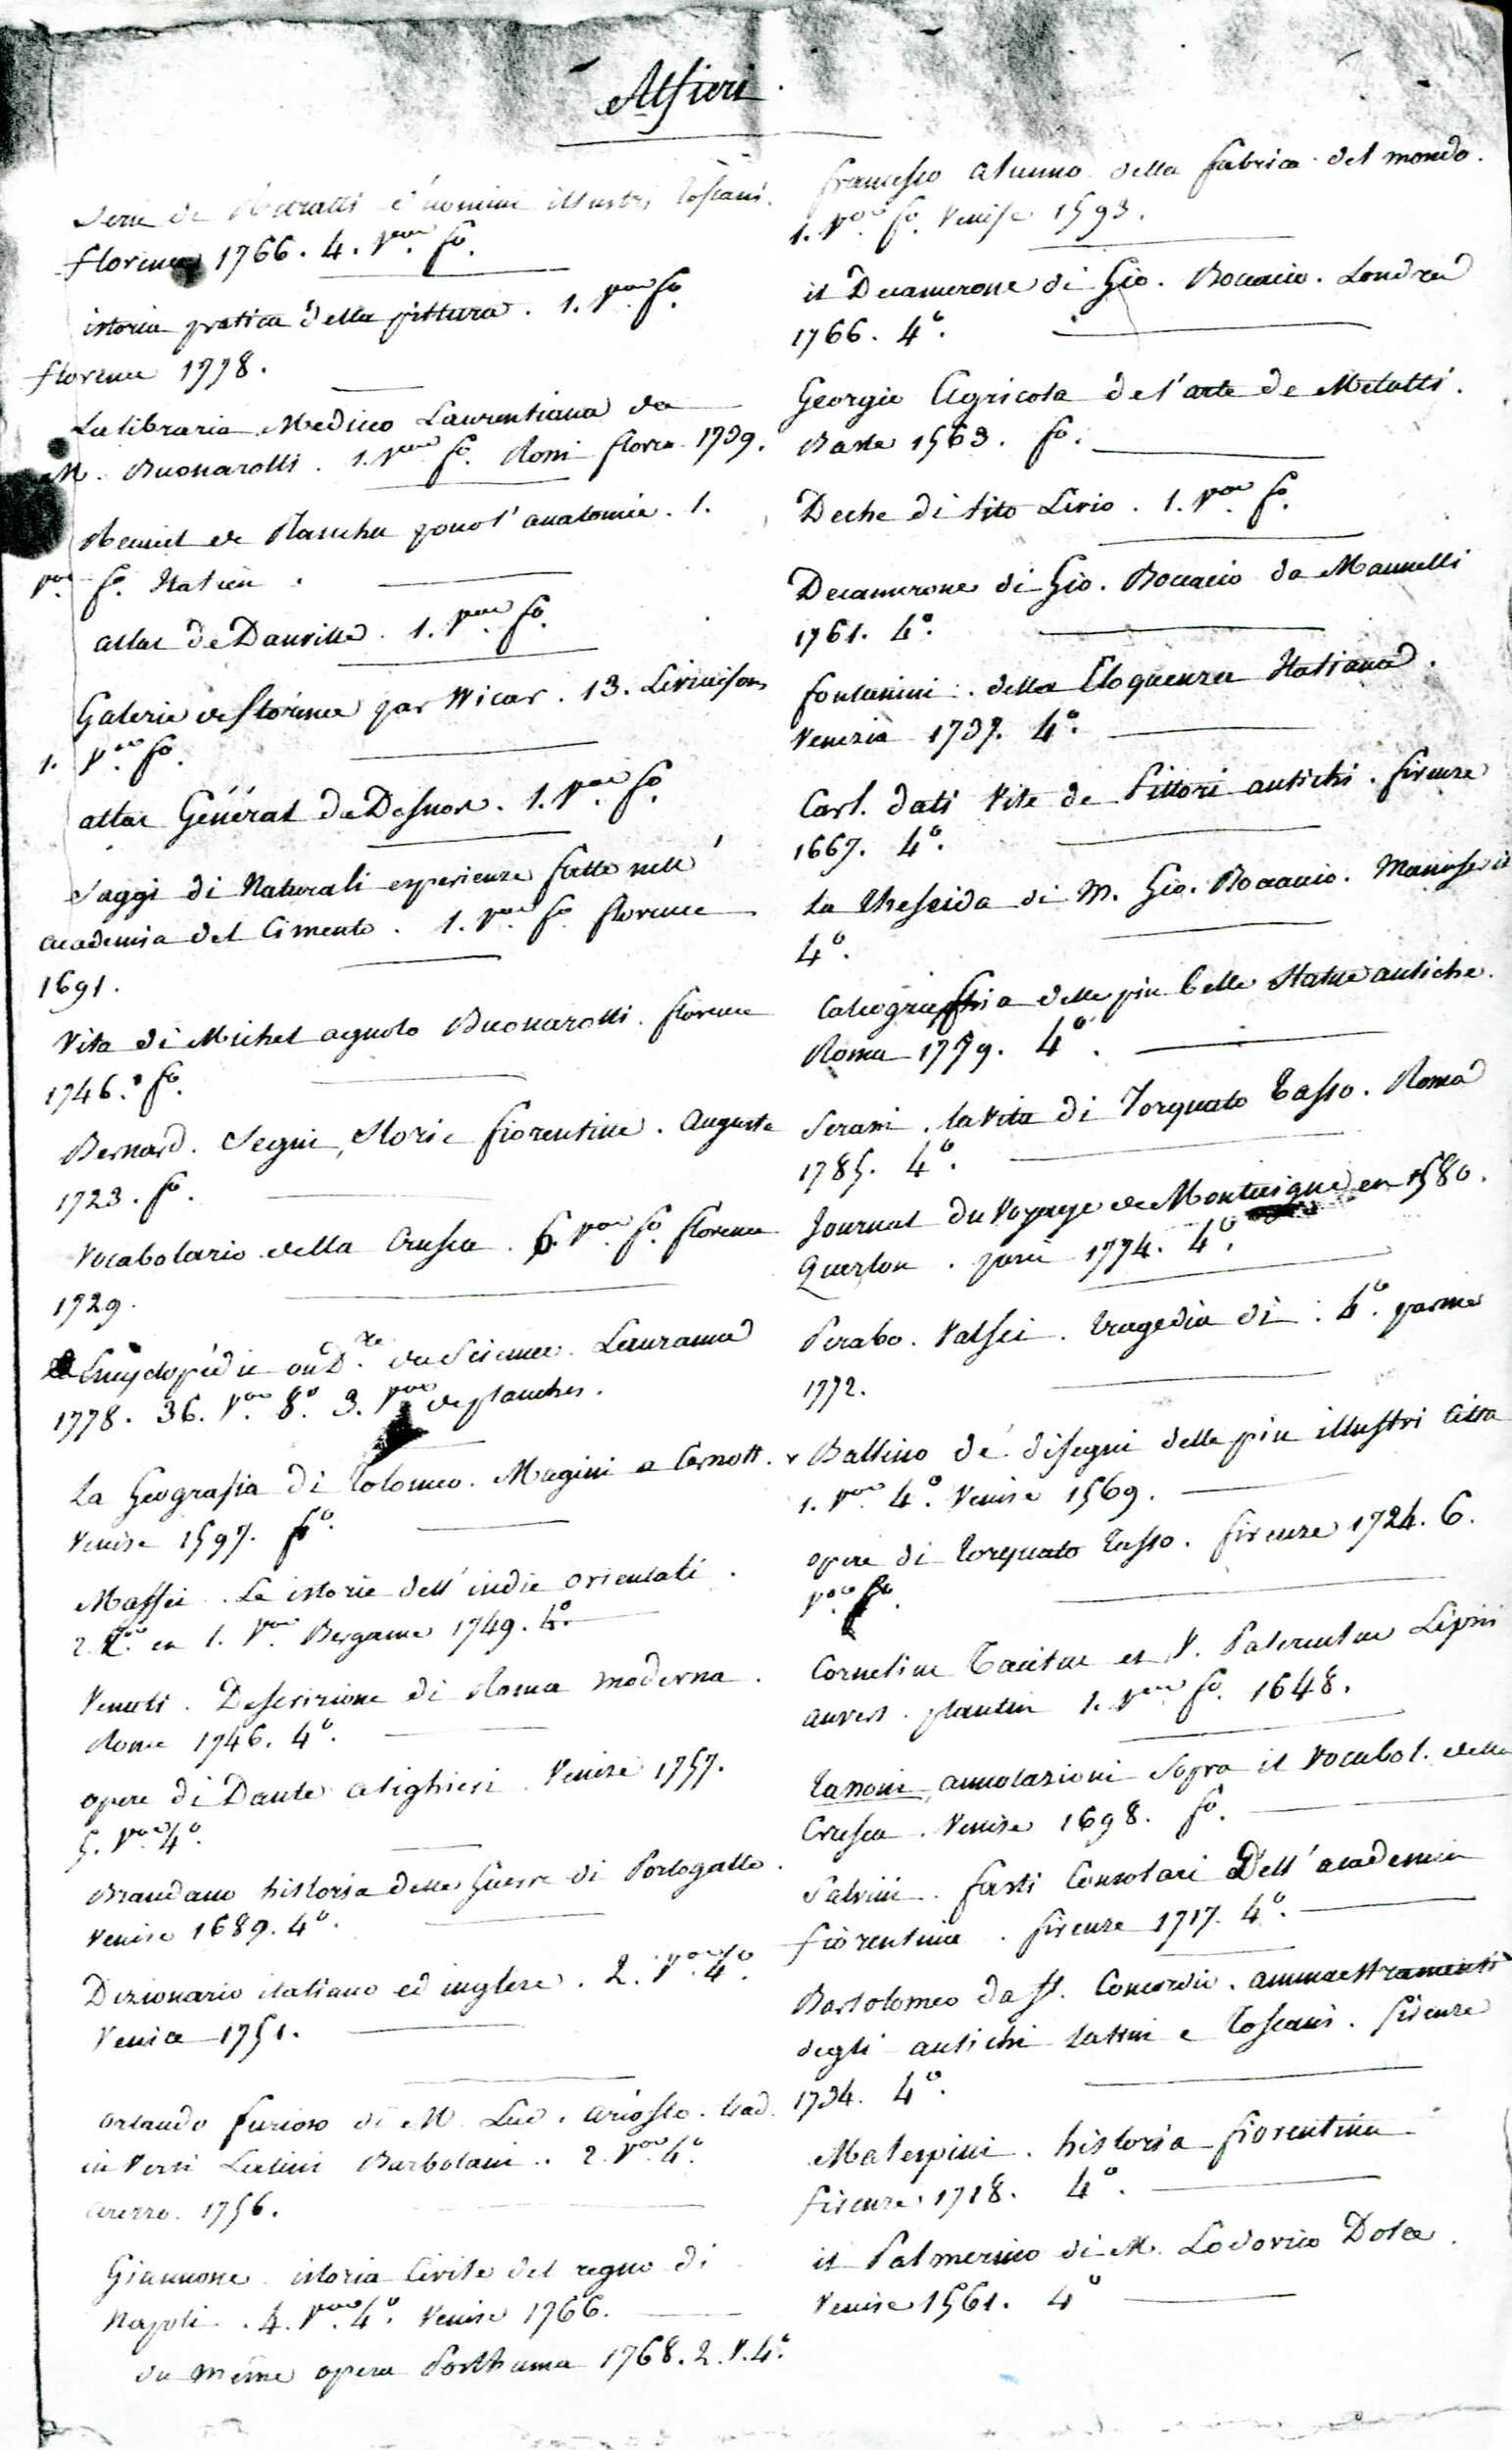 Alfieri.
Serie de Ritratti d'uomini illustri toscani.
florence 1766. 4. vol. fo.
istoria pratica della pittura. 1. vol. fo.
florence 1778.
La libraria Medico Laurentiana da
M. Buonarotti. 1. vol. fo. floren. 1739.
Recueil de Planches pour l'anatomie. 1.
vol. fo. Italien.
atlas de Danville. 1. vol. fo.
Galerie de florence par Wicar. 13. Livraisons
1. vol. fo.
atlas Général de Desnos. 1. vol. fo.
Saggi di Naturali esperienze fatte nell'
academia del Cimento. 1. vol. fo. florence
1691.
Vita di Michel agnolo Buonarotti. florence
1746. fo.
Bernard. Segni, Storie fiorentine. Augusta
1723. fo.
Vocabolario della Crusca. 6. vol. fo. florence
1729.
Encyclopédie ou D.re des Sciences. Lausanne
1778. 36. vol. 8o. 3. vol. de planches.
La Geografia di Tolomeo. Magini e Cernott.
Venise 1597. fo.
Maffei. Le istorie dell'indie orientali.
2. T. en 1. vol. Bergame 1749. 4o.
Venuti. Descrizione di Roma moderna.
Rome 1746. 4o.
opere di Dante alighieri. Venise 1757.
5. vol. 4o.
Brandano historia delle Guerre di Portogallo.
Venise 1689. 4o.
Dizionario italiano ed inglese. 2. vol. 4o.
Venice 1751.
Orlando furioso di M. Lud. ariosto. trad.
in versi Latini Barbolani. 2. vol. 4o.
arezzo. 1756.
Giannone istoria Civile del regno di
Napoli. 4. vol. 4o. Venise 1766.
du même opera Posthuma 1768. 2. v. 4o.
francesco alunno della fabrica del mondo.
1. vol. fo. Venise 1593.
il Decamerone di Gio. Boccacio. Londra
1766. 4o.
Georgio Agricola de l'arte de Metalli.
Basle 1563. fo.
Deche di tito Livio. 1. vol. fo.
Decamerone di Gio. Boccacio da Mannelli
1761. 4o.
fontanini. della Eloquenza Italiana.
Venezia 1737. 4o.
Carl. dati Vite de Pittori antichi. firenze
1667. 4o.
La theseida di M. Gio. Boccacio. Manuscrit
4o.
Calcografia delle piu belle Statue antiche.
Roma 1779. 4o.
Serassi. la Vita di Torquato Tasso. Roma
1785. 4o.
Journal du Voyage de Montaigne en 1580.
Querlon. paris 1774. 4o.
Perabo. Valsei. tragedia di. 4o. parme
1772.
Ballino de' disegni delle piu illustri Citta
1. vol. 4o. Venise 1569.
opere di torquato tasso. firenze 1724. 6.
vol. fo.
Cornelius Tacitus et V. Paterculus Lipsii
anvers. plantin 1. vol. fo. 1648.
Tassoni, annotazioni sopra il Vocabol. della
Crusca. Venise 1698. fo.
Salvini. fasti Consolari Dell'academia
fiorentina. firenze 1717. 4o.
Bartolomeo da St. Concordio. ammaestramenti
degli antichi latini e toscani. firenze
1734. 4o.
Malespini. historia fiorentina
firenze 1718. 4o.
il Palmerino di M. Lodovico Dolce.
Venise 1561. 4o